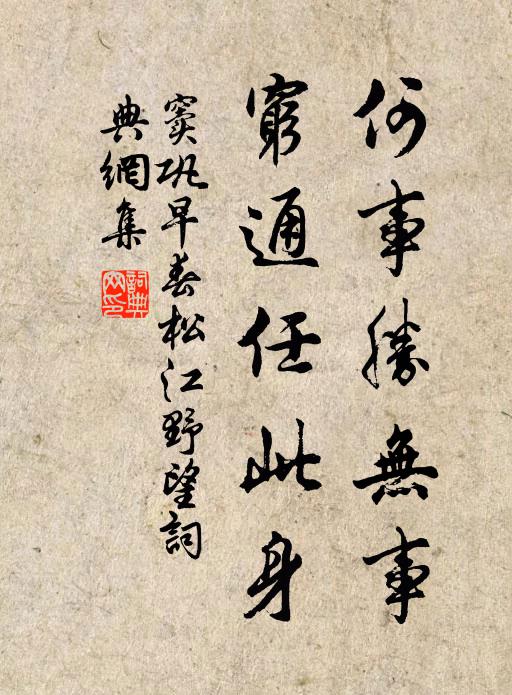 何事勝無事
窮通任此身
竇巩早春松江野望詞
典網集
詞典網印